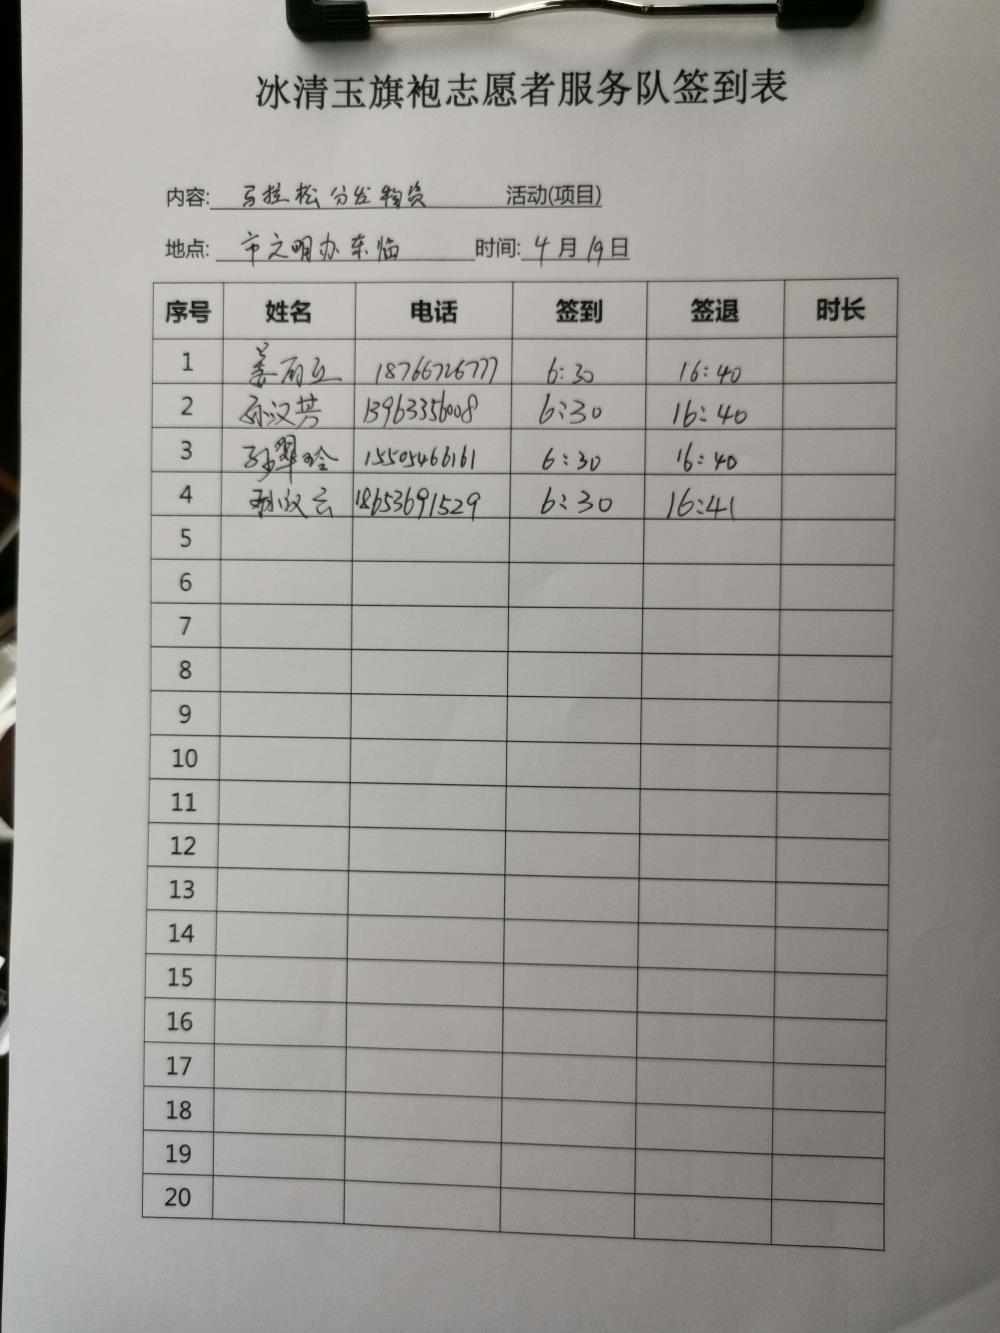 冰清玉旗袍志愿者服务队签到表
内容: 马拉松分发物资 活动(项目)
地点: 市文明办东临 时间: 4月19日
序号 姓名 电话 签到 签退 时长
1 姜 18766726777 6:30 16:40
2 孙汉芳 13963356008 6:30 16:40
3 孙翠玲 15505466161 6:30 16:40
4 孙汉云 18653691529 6:30 16:41
5
6
7
8
9
10
11
12
13
14
15
16
17
18
19
20